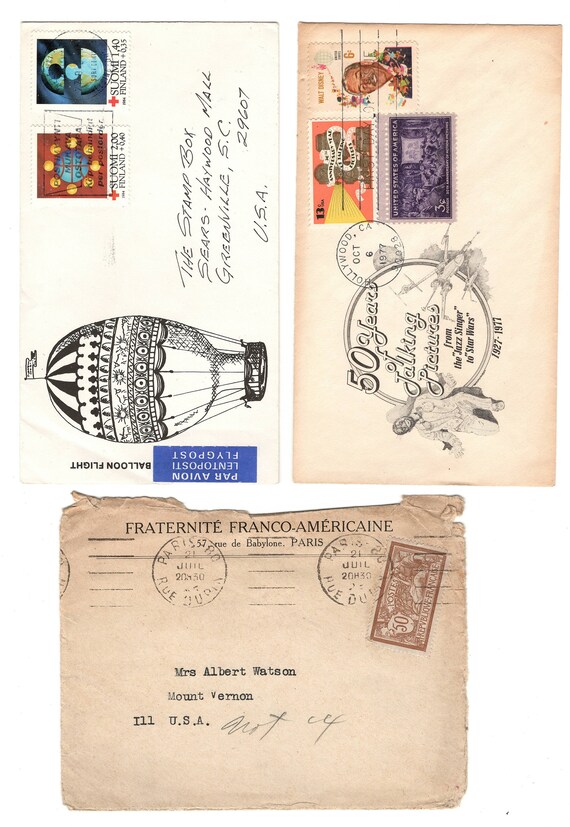 SUOMI 1,40
FINLAND +0,35
SUOMI 2,00
FINLAND +0,40
THE STAMP BOX
SEARS-HAYWOOD MALL
GREENVILLE, S.C.
29607
U.S.A.
BALLOON FLIGHT
PAR AVION
LENTOPOSTI
FLYGPOST
WALT DISNEY
6c
13c
UNITED STATES OF AMERICA
3¢
HOLLYWOOD, CA
OCT
6
1977
90028
50 Years
of
Talking
Pictures
from
the "Jazz Singer"
to "Star Wars"
1927-1977
FRATERNITÉ FRANCO-AMÉRICAINE
57, rue de Babylone, PARIS
PARIS
21
JUIL
20H30
RUE DUPIN
PARIS
21
JUIL
20H30
RUE DUPIN
POSTES
50c
REPUBLIQUE FRANÇAISE
Mrs Albert Watson
Mount Vernon
Ill U.S.A.